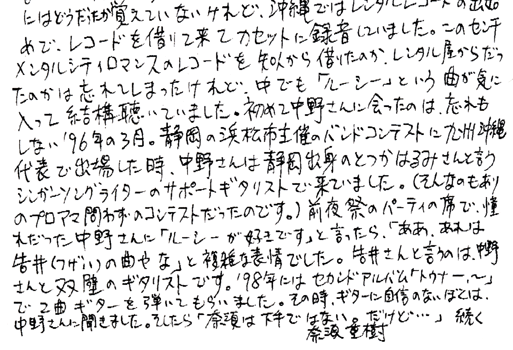 にはどうだたか覚えていないけれど、沖縄ではレンタルレコードの出始
めで、レコードを借りて来てカセットに録音していました。このセンチ
メンタルシティロマンスのレコードを知人から借りたのか、レンタル屋からだっ
たのかは忘れてしまったけれど、中でも「ルーシー」という曲が気に
入って結構聴いていました。初めて中野さんに会ったのは、忘れも
しない'96年の3月。静岡の浜松市主催のバンドコンテストに九州沖縄
代表で出場した時、中野さんは静岡出身のとつかはるみさんと言う
シンガーソングライターのサポートギタリストで来ていました。(そんなのもあり
のプロアマ問わずのコンテストだったのです。)前夜祭のパーティの席で、憧
れだった中野さんに「ルーシーが好きです」と言ったら、「ああ、あれは
告井(つげい)の曲やな」と複雑な表情でした。告井さんと言うのは、中野
さんと双璧のギタリストです。'98年にはセカンドアルバム「トゥナー,〜」
で2曲ギターを弾いてもらいました。その時、ギターに自信のないぼくは、
中野さんに聞きました。そしたら「奈須は下手ではない。だけど…」 続く
奈須重樹